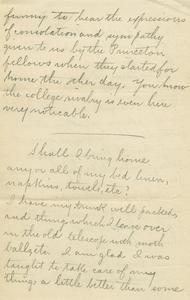 funny to hear the expressions
of consolation and sympathy
given to us by the Princeton
fellows when they started for
home the other day. You know
the college rivalry is even here
very noticeable.
Shall I bring home
any or all of my bed linen,
napkins, towels, etc?
I have my trunk well packed
and things which I leave over
in the old telescope with moth
balls etc. I am glad I was
taught to take care of my
things a little better than some